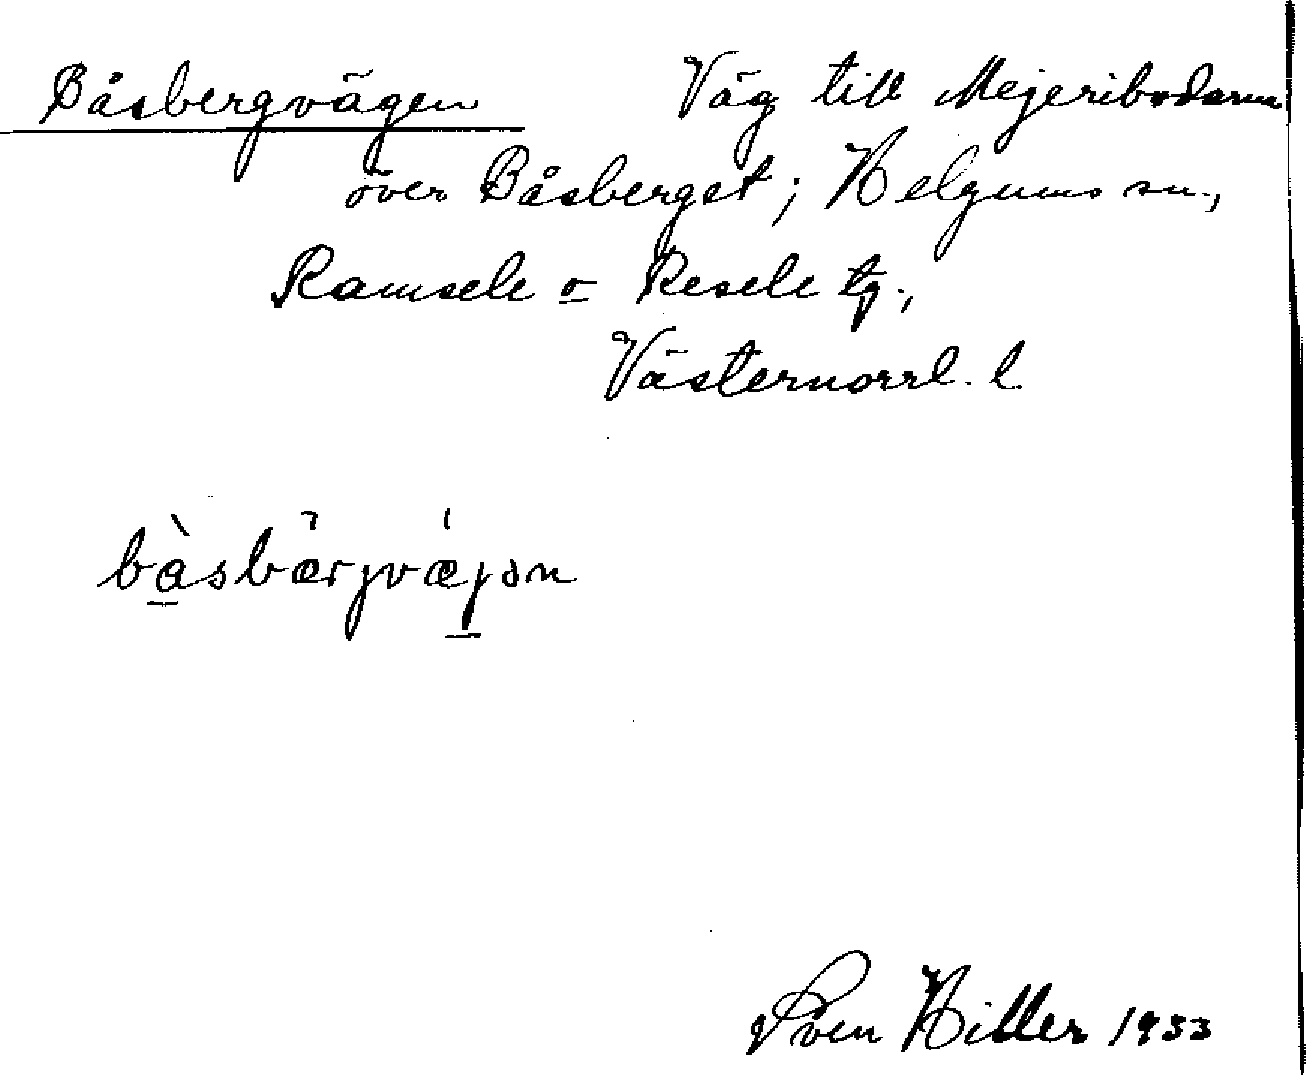 Båsbergvägen Väg till Mejeribodarna
över Båsberget; Helgums sn.,
Ramsele o Resele tg.,
Västernorrl. l
bàsbærjvæjən
Sven Hiller 1933